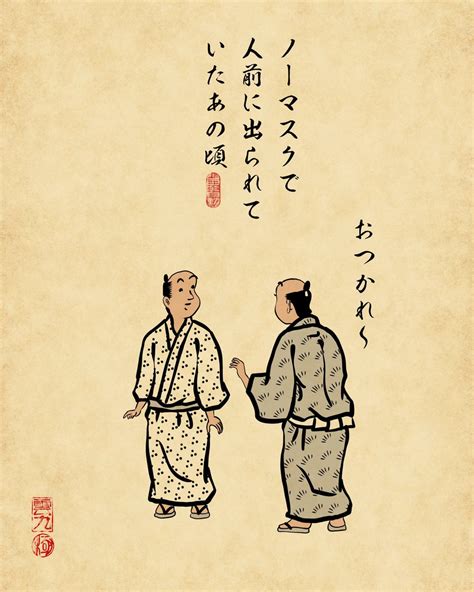 ノーマスクで
人前に出られて
いたあの頃
おつかれ〜